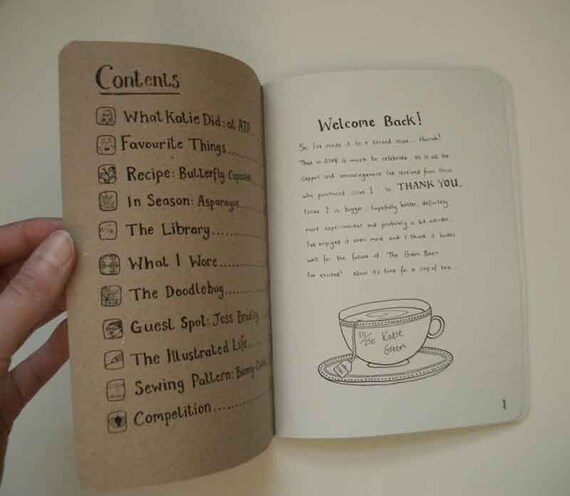 Contents
What Katie Did: at ATP
Favourite Things......
Recipe: Butterfly Cupcakes
In Season: Asparagus
The Library.......
What I Wore........
The Doodlebug......
Guest Spot: Jess Bradley
The Illustrated Life...
Sewing Pattern: Bunny
Competition..........
Welcome Back!
So, I've made it to a second issue... Hurrah!
That in itself is much to celebrate, as is all the
support and encouragement I've received from those
who purchased issue 1. So THANK YOU.
Issue 2 is bigger, hopefully better, definitely
more experimental and probably a bit wonkier.
I've enjoyed it even more and I think it bodes
well for the future of The Green Bean.
I'm excited! Now its time for a cup of tea...
Katie
Green
1